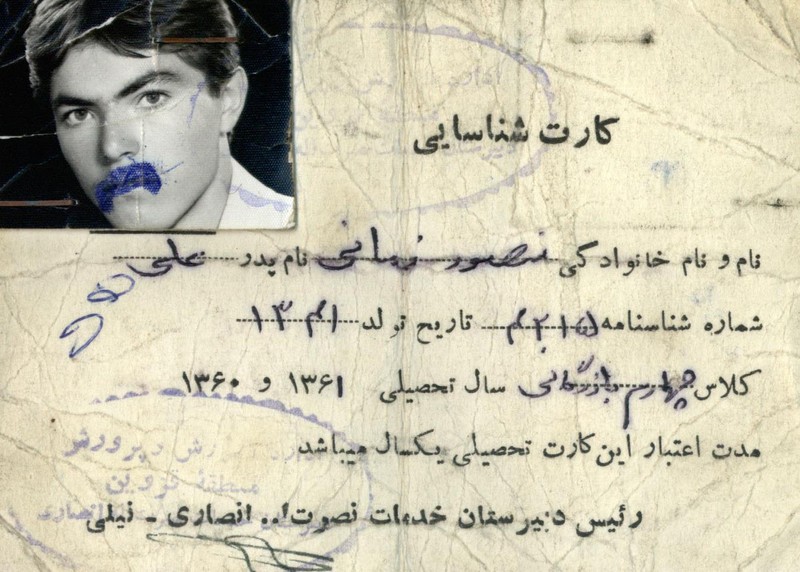 کارت شناسایی
نام و نام خانوادگی منصور زمانی نام پدر علی
شماره شناسنامه تاریخ تولد ۱۳۴۱
کلاس چهارم بازرگانی سال تحصیلی ۱۳۶۱ و ۱۳۶۰
مدت اعتبار این کارت تحصیلی یکسال میباشد
رئیس دبیرستان خدمات نصرت ا.. انصاری - نیلی
پرورش
منطقه قزوین
انصاری